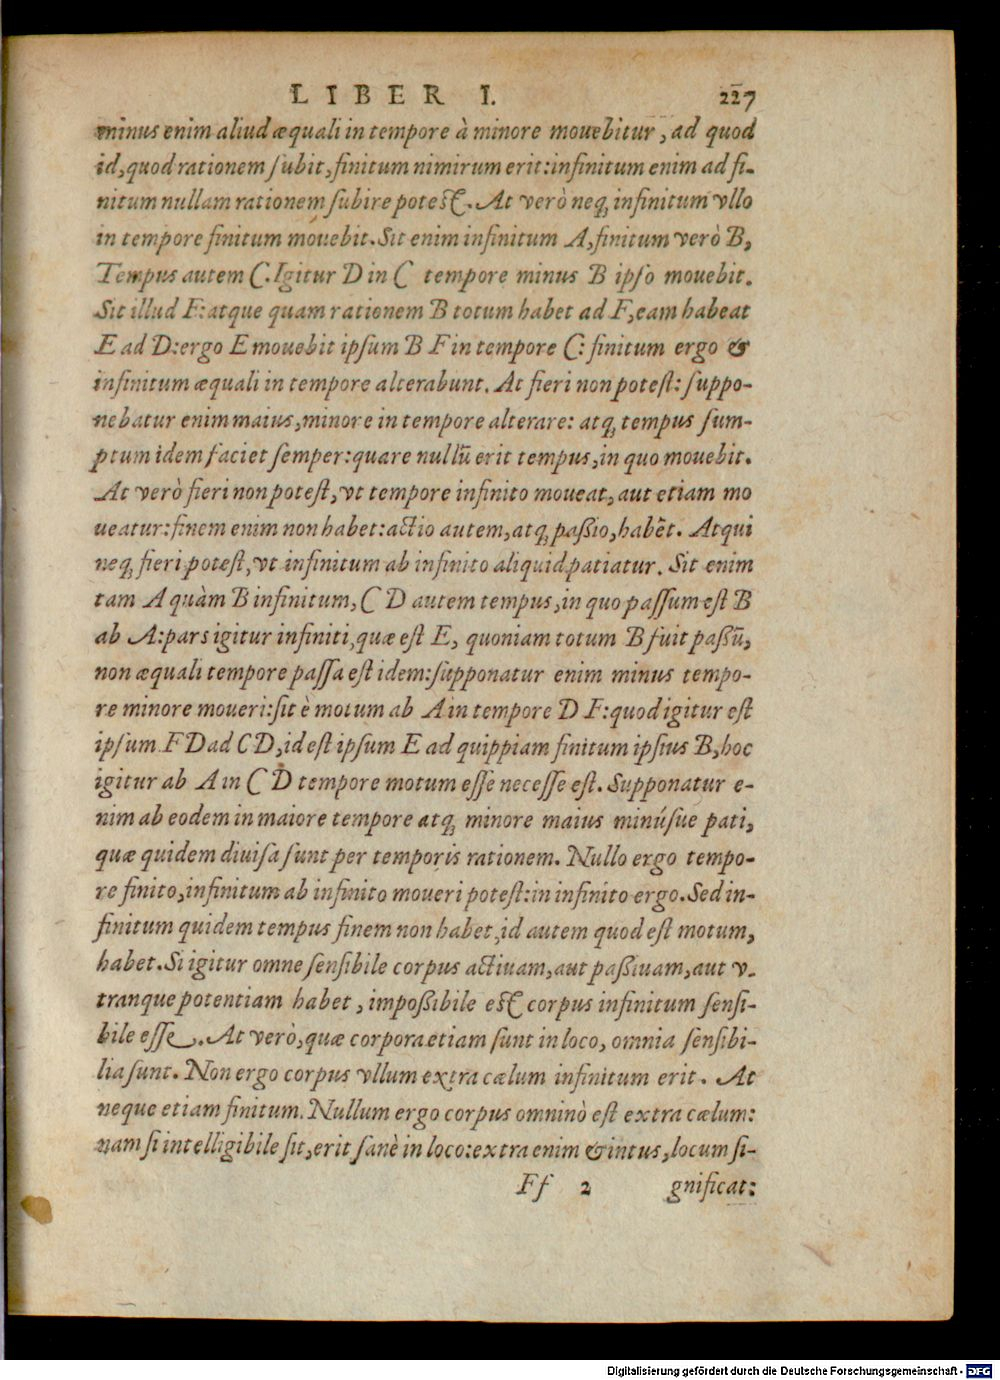 LIBER I. 227
minus enim aliud æquali in tempore à minore mouebitur, ad quod
id, quod rationem subit, finitum nimirum erit: infinitum enim ad fi-
nitum nullam rationem subire potest. At verò neq; infinitum vllo
in tempore finitum mouebit. Sit enim infinitum A, finitum verò B,
Tempus autem C. Igitur D in C tempore minus B ipso mouebit.
Sit illud F: atque quam rationem B totum habet ad F, eam habeat
E ad D: ergo E mouebit ipsum B F in tempore C: finitum ergo &
infinitum æquali in tempore alterabunt. At fieri non potest: suppo-
nebatur enim maius, minore in tempore alterare: atq; tempus sum-
ptum idem faciet semper: quare nullũ erit tempus, in quo mouebit.
At verò fieri non potest, vt tempore infinito moueat, aut etiam mo
ueatur: finem enim non habet: actio autem, atq; passio, habẽt. Atqui
neq; fieri potest, vt infinitum ab infinito aliquid patiatur. Sit enim
tam A quàm B infinitum, C D autem tempus, in quo passum est B
ab A: pars igitur infiniti, quæ est E, quoniam totum B fuit passũ,
non æquali tempore passa est idem: supponatur enim minus tempo-
re minore moueri: sit è motum ab A in tempore D F: quod igitur est
ipsum F D ad C D, id est ipsum E ad quippiam finitum ipsius B, hoc
igitur ab A in C D tempore motum esse necesse est. Supponatur e-
nim ab eodem in maiore tempore atq; minore maius minúsue pati,
quæ quidem diuisa sunt per temporis rationem. Nullo ergo tempo-
re finito, infinitum ab infinito moueri potest: in infinito ergo. Sed in-
finitum quidem tempus finem non habet, id autem quod est motum,
habet. Si igitur omne sensibile corpus actiuam, aut passiuam, aut v-
tranque potentiam habet, impossibile est corpus infinitum sensi-
bile esse. At verò, quæ corpora etiam sunt in loco, omnia sensibi-
lia sunt. Non ergo corpus vllum extra cælum infinitum erit. At
neque etiam finitum. Nullum ergo corpus omninò est extra cælum:
nam si intelligibile sit, erit sanè in loco: extra enim & intus, locum si-
Ff 2 gnificat:
Digitalisierung gefördert durch die Deutsche Forschungsgemeinschaft - DFG